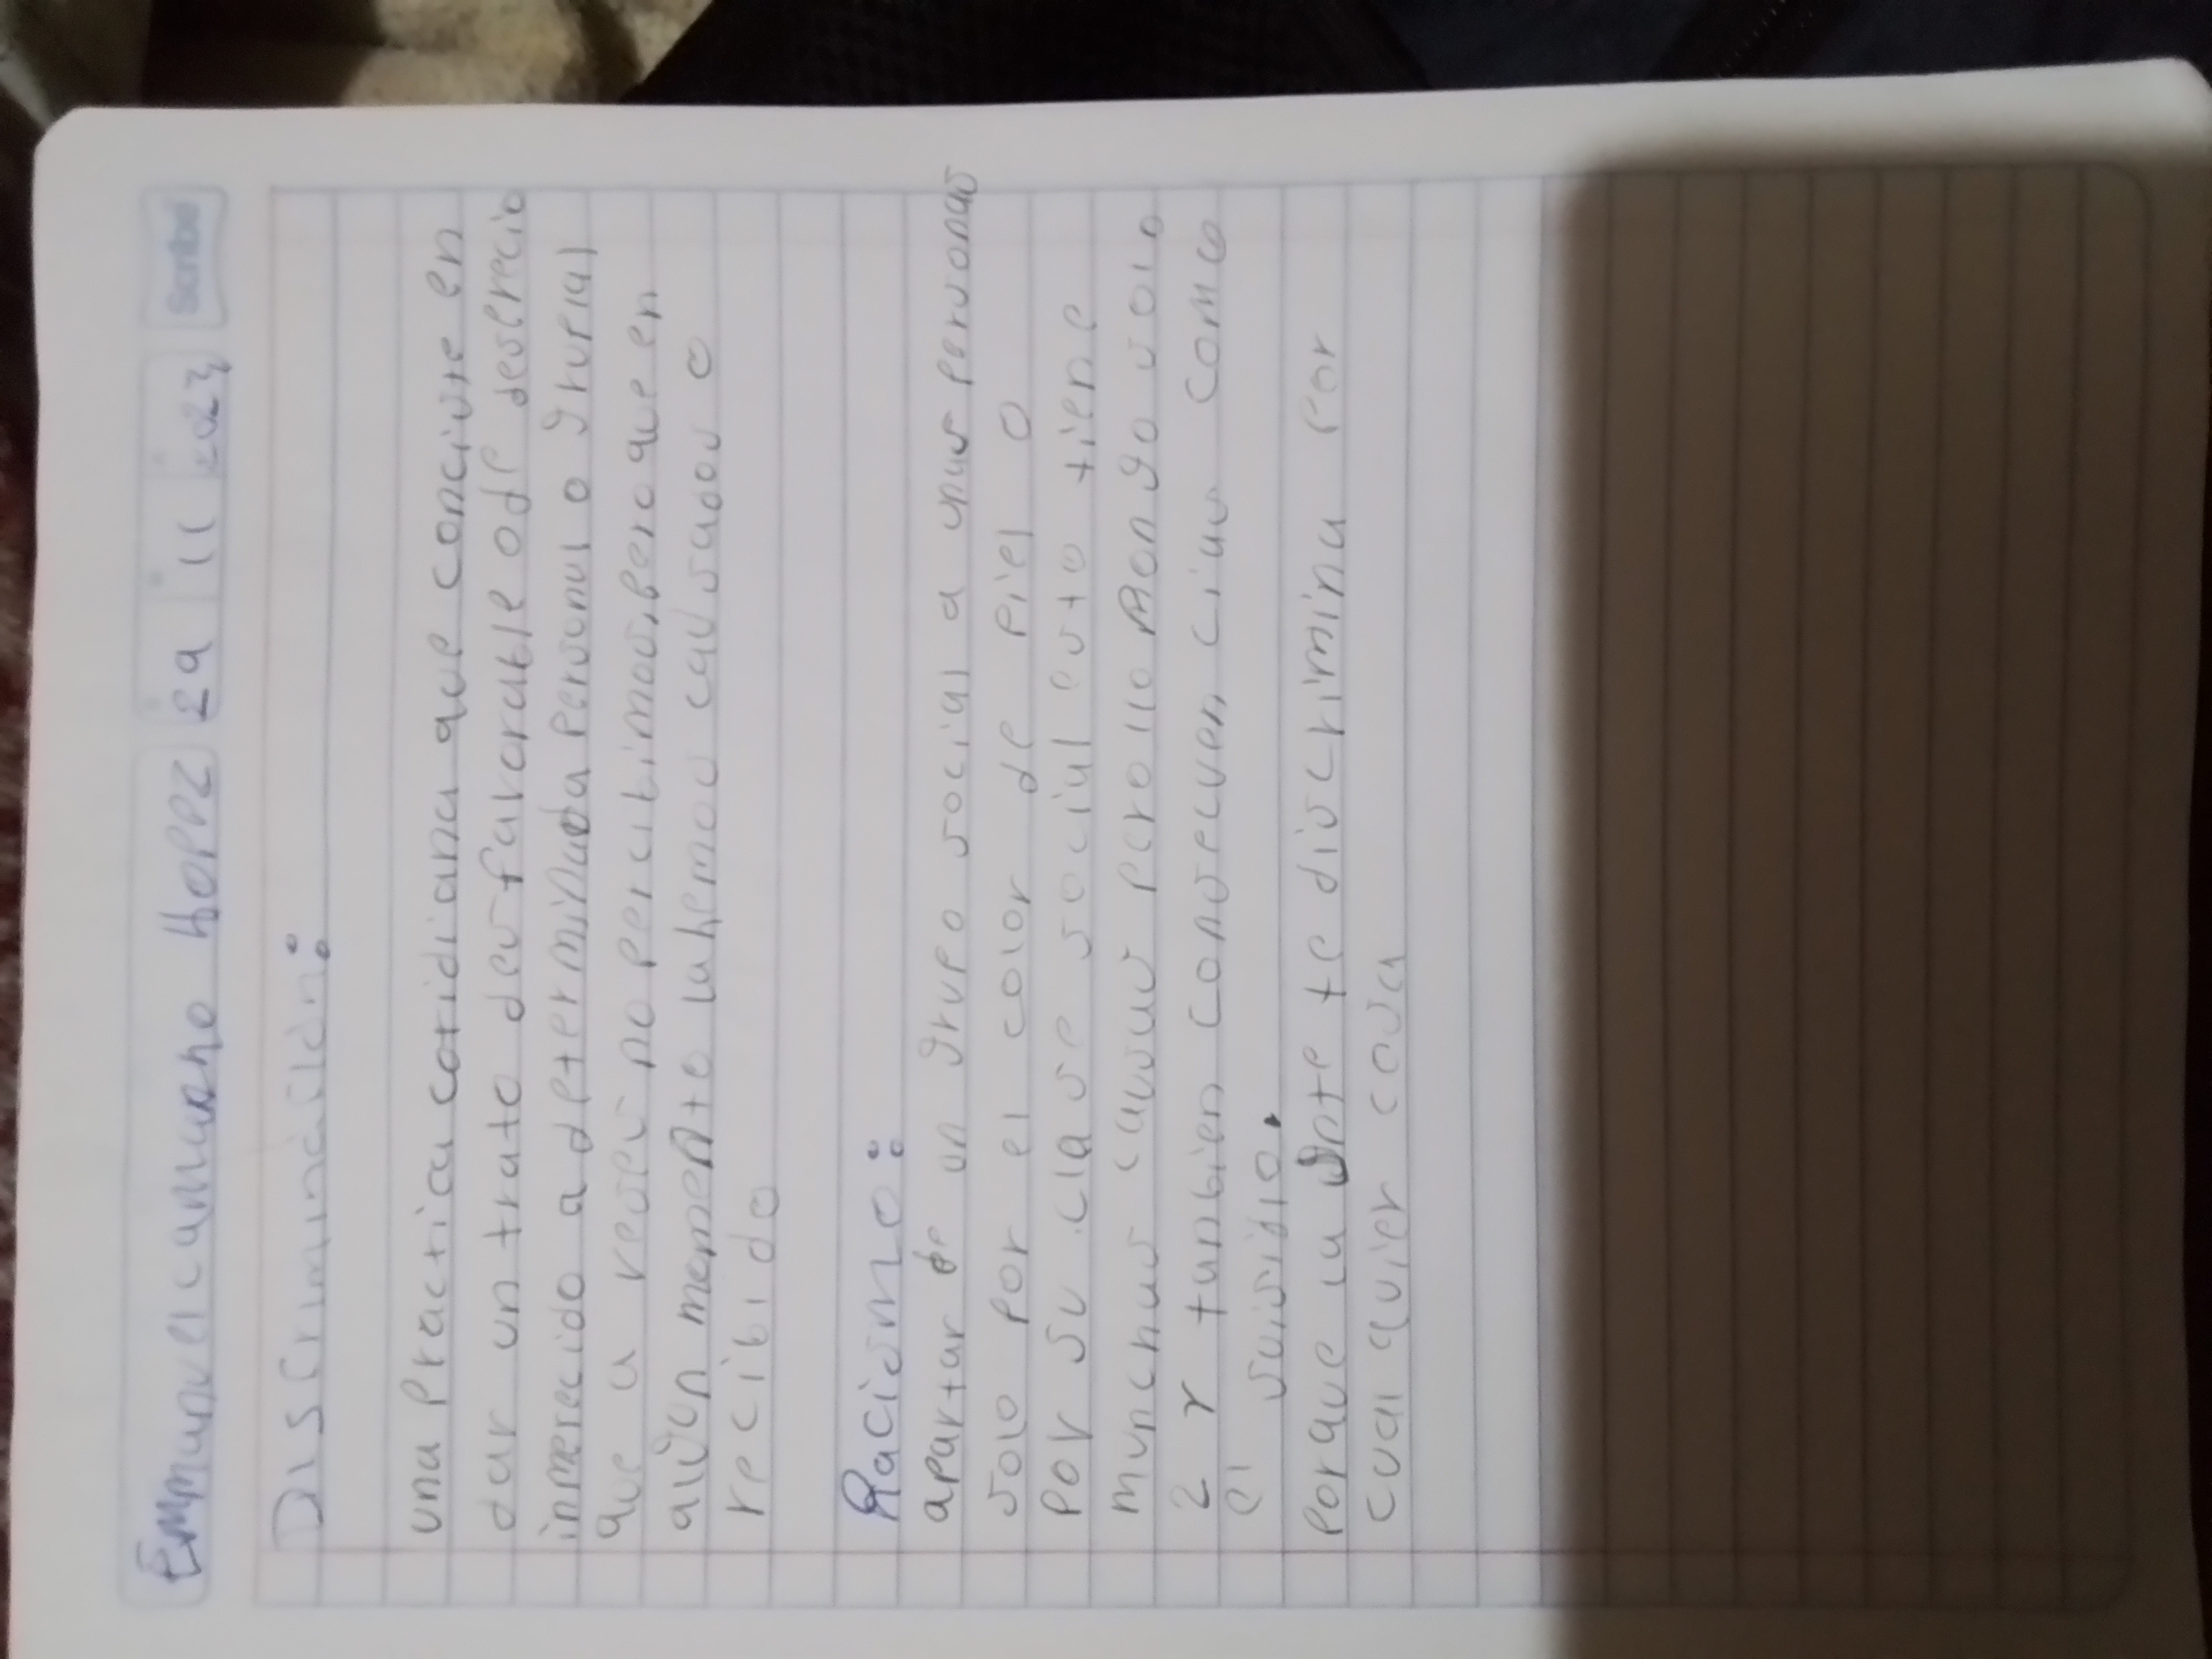 Emmanuel camarano lopez 29 11 2023 Scribe
Discriminación:
una Practica cotidiana que concisire en
dar un trato desfavorable o de desprecio
inmerecido a determinada personal o grupal
que a veces no percibimos, pero que en
algun momento la hemos causados o
recibido
Racismo:
apartar de un grupo social a unas personas
solo por el color de piel o
por su clase social esto tiene
munchas causas pero llo pongo solo
2 y tanbien consecuen, cias como
el suisidio.
Porque la gnte te discrimina por
cual quier cosa